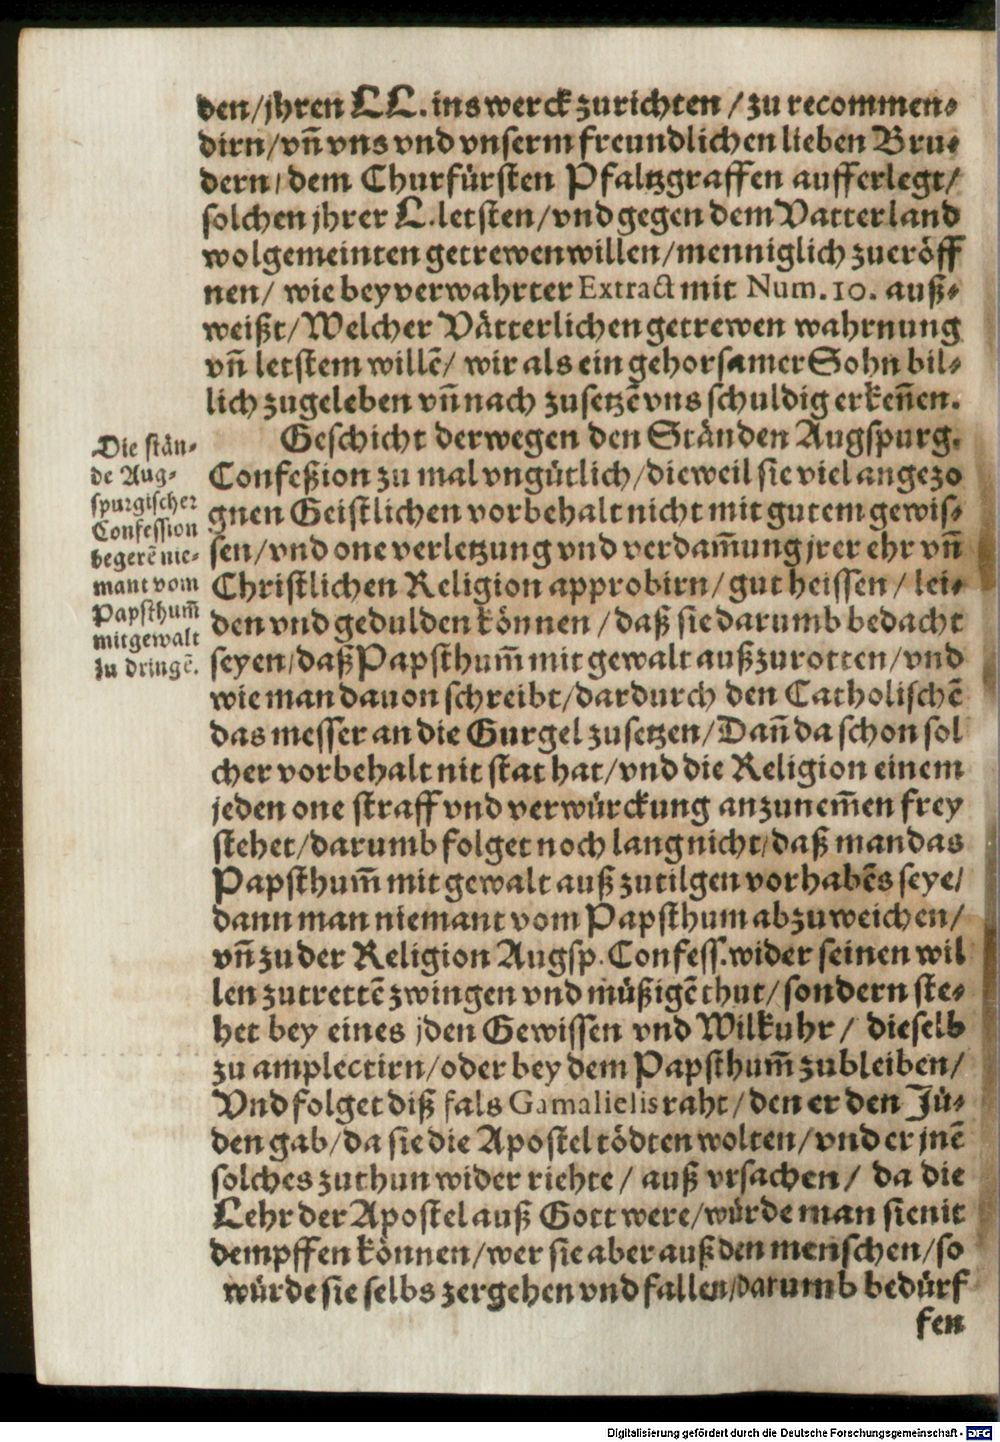 den/jhren LL. ins werck zurichten / zu recommen-
dirn/vñ vns vnd vnserm freundlichen lieben Bru-
dern/ dem Churfürsten Pfaltzgraffen aufferlegt/
solchen jhrer L. letsten/vnd gegen dem Vatterland
wolgemeinten getrewen willen/menniglich zueröff
nen/ wie bey verwahrter Extract mit Num. 10. auß-
weißt/Welcher Vätterlichen getrewen wahrnung
vñ letstem willẽ/ wir als ein gehorsamer Sohn bil-
lich zugeleben vñ nach zusetzẽ vns schuldig erkeñen.
Geschicht derwegen den Ständen Augspurg.
Confeßion zu mal vngütlich/dieweil sie viel angezo
gnen Geistlichen vorbehalt nicht mit gutem gewis-
sen/vnd one verletzung vnd verdam̃ung jrer ehr vñ
Christlichen Religion approbirn/gut heissen/ lei-
den vnd gedulden können / daß sie darumb bedacht
seyen/daß Papsthum̃ mit gewalt außzurotten/vnd
wie man dauon schreibt/dardurch den Catholischẽ
das messer an die Gurgel zusetzen/Dañ da schon sol
cher vorbehalt nit stat hat/vnd die Religion einem
jeden one straff vnd verwürckung anzunem̃en frey
stehet/darumb folget noch lang nicht/daß man das
Papsthum̃ mit gewalt auß zutilgen vorhabẽs seye/
dann man niemant vom Papsthum abzuweichen/
vñ zu der Religion Augsp. Confess. wider seinen wil
len zutrettẽ zwingen vnd müßigẽ thut/sondern ste-
het bey eines jden Gewissen vnd Wilkuhr/ dieselb
zu amplectirn/oder bey dem Papsthum̃ zubleiben/
Vnd folget diß fals Gamalielis raht/den er den Jü-
den gab/da sie die Apostel tödten wolten/vnd er jnẽ
solches zuthun wider riehte/ auß vrsachen/ da die
Lehr der Apostel auß Gott were/würde man sie nit
dempffen können/wer sie aber auß den menschen/so
würde sie selbs zergehen vnd fallen/darumb bedürf
fen
Die stän-
de Aug-
spurgischer
Confession
begerẽ nie-
mant vom
Papsthum̃
mit gewalt
zu dringẽ.
Digitalisierung gefördert durch die Deutsche Forschungsgemeinschaft - DFG